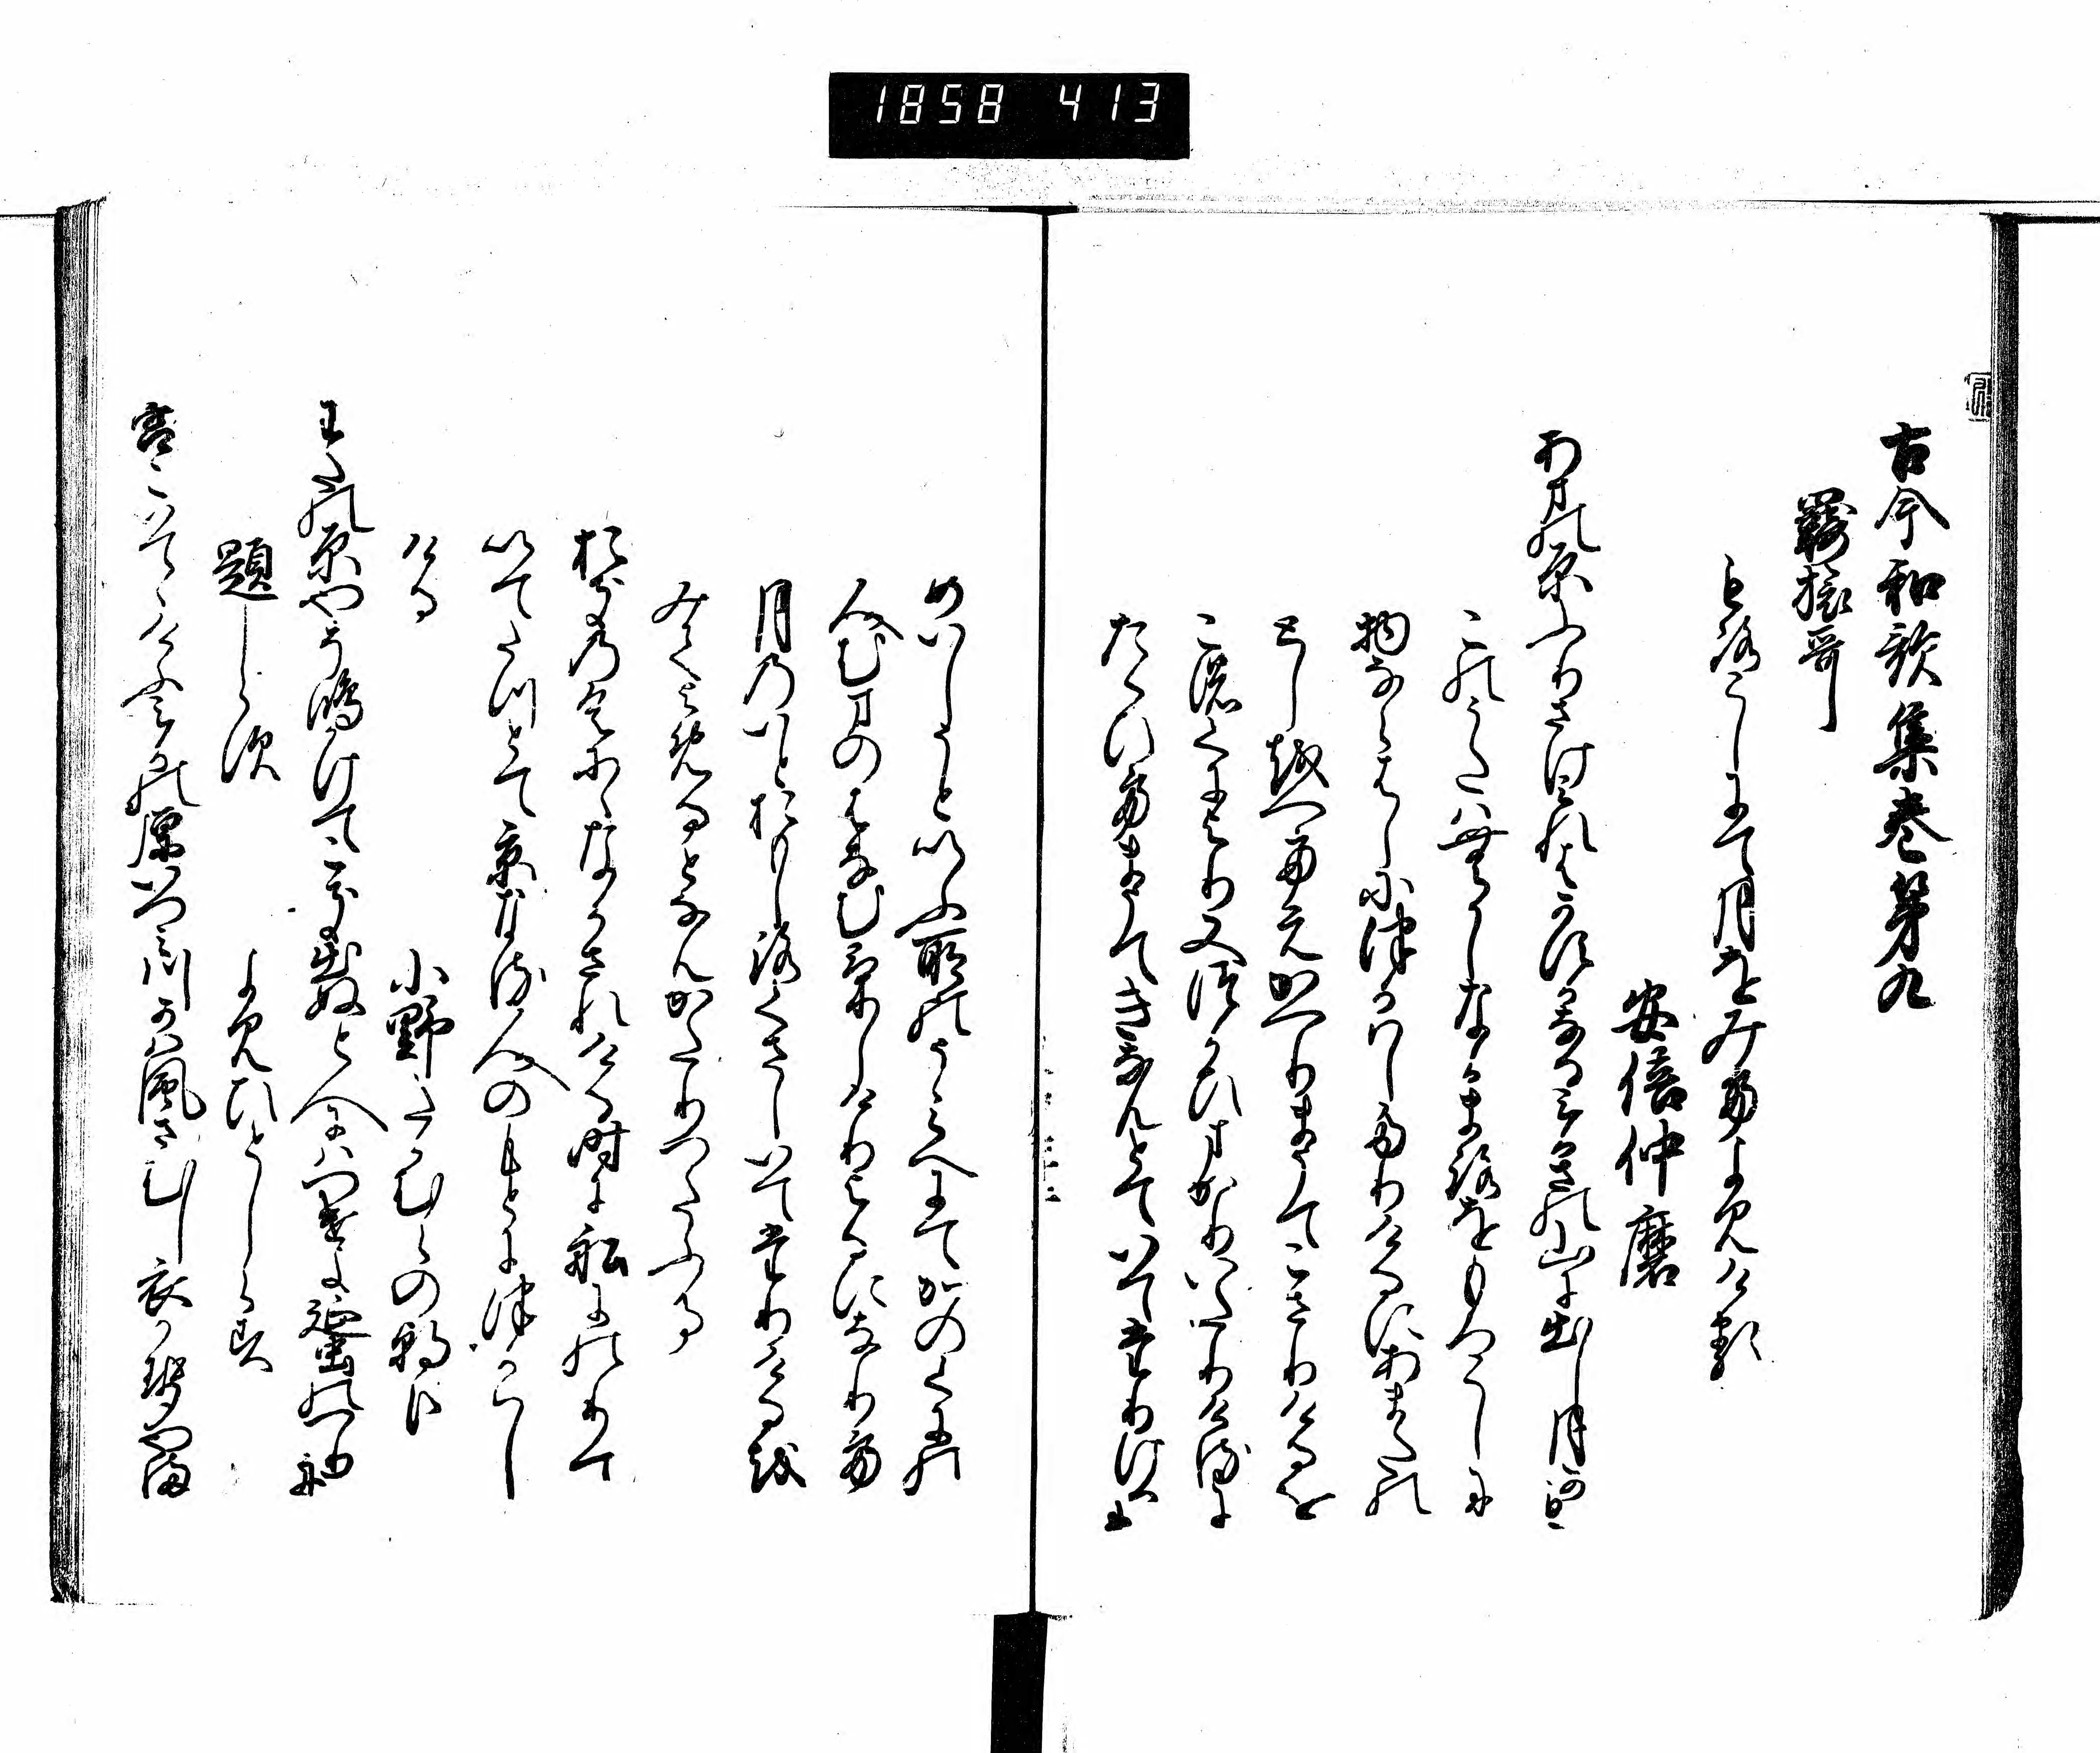 1858 413
古今和歌集巻第九
羇旅哥
もろこしにて月をみてよみける
安倍仲麿
あまの原ふりさけみれはかすかなるみかさの山に出し月かも
このうたはむかしなかまろをもろこしに
物ならはしにつかはしたりけるにあまたの
としを越てえかへりまうてこさりけるを
このくによりまたつかひまかりいたりけるに
たくひてまうてきなんとていてたりけるに
めいしうといふ所のうみへにてかのくにの
人むまのはなむけしけりよるになりて
月のいとおもしろくさしいてたりけるを
みてよめるとなんかたりつたふる
おきの国になかされける時に船にのりて
いてたつとて京なる人のもとにつかはし
ける
小野たかむらの朝臣
わたの原やそ嶋かけてこき出ぬと人にはつけよ蜑のつり舟
題しらす
よみひとしらす
宮こいてゝけふみかの原いつみ川かは風さむし衣かせ山